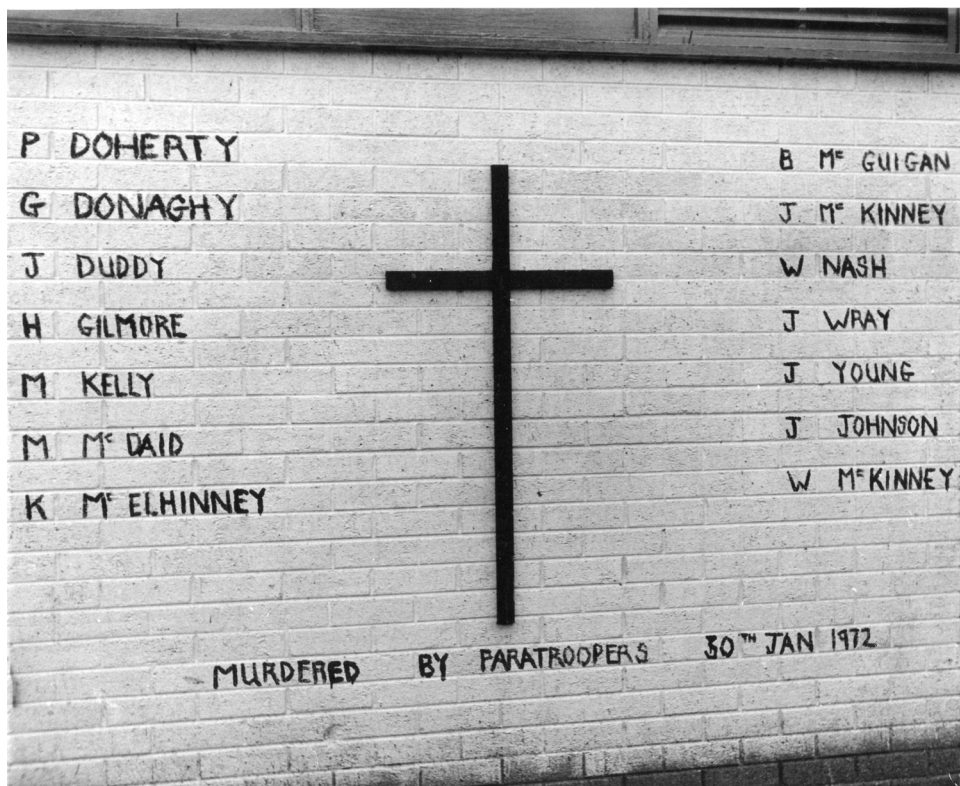 P DOHERTY
G DONAGHY
J DUDDY
H GILMORE
M KELLY
M Mc DAID
K Mc ELHINNEY
B Mc GUIGAN
J Mc KINNEY
W NASH
J WRAY
J YOUNG
J JOHNSON
W McKINNEY
MURDERED BY PARATROOPERS 30TH JAN 1972